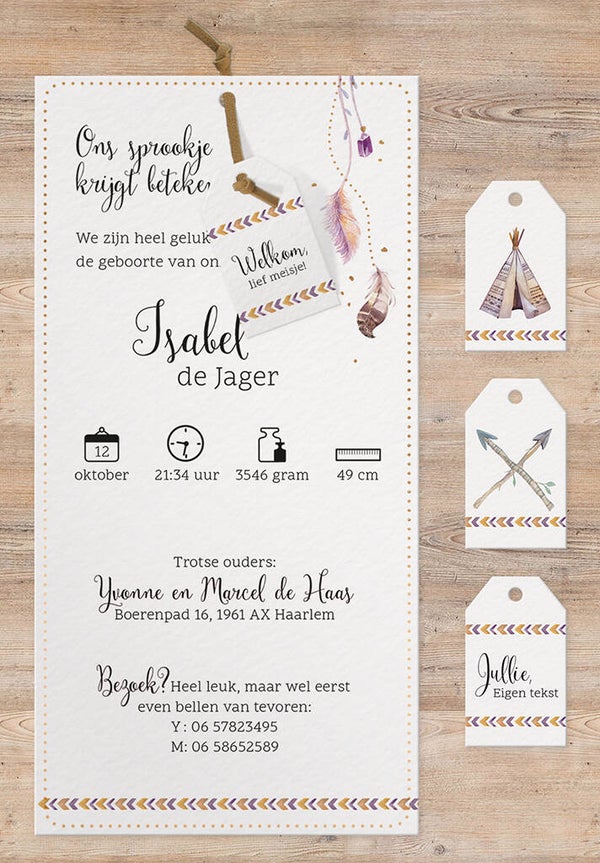 Ons sprookje
krijgt beteke
We zijn heel geluk
de geboorte van on
Welkom,
lief meisje!
Isabel
de Jager
12
oktober 21:34 uur 3546 gram 49 cm
Trotse ouders:
Yvonne en Marcel de Haas
Boerenpad 16, 1961 AX Haarlem
Bezoek? Heel leuk, maar wel eerst
even bellen van tevoren:
Y: 06 57823495
M: 06 58652589
Jullie,
Eigen tekst